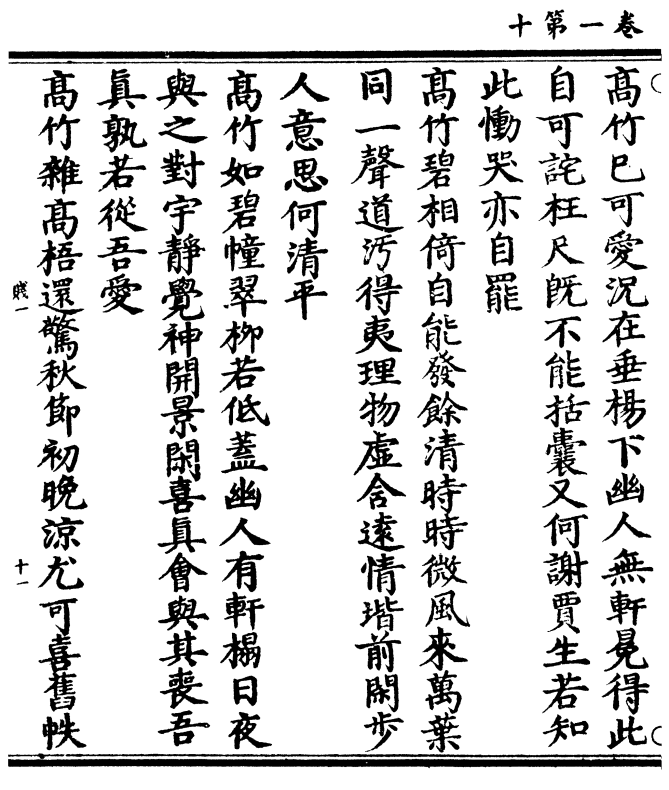 卷一第十
高竹巳可愛況在垂楊下幽人無軒冕得此
自可詫枉尺旣不能括囊又何謝賈生若知
此慟哭亦自罷
高竹碧相倚自能發餘清時時微風來萬葉
同一聲道汚得夷理物虛含遠情堦前閑步
人意思何清平
高竹如碧幢翠柳若低蓋幽人有軒榻日夜
與之對宇靜覺神開景閑喜眞會與其喪吾
眞孰若從吾愛
高竹雜高梧還驚秋節初晚涼尤可喜舊帙
賤一
十一